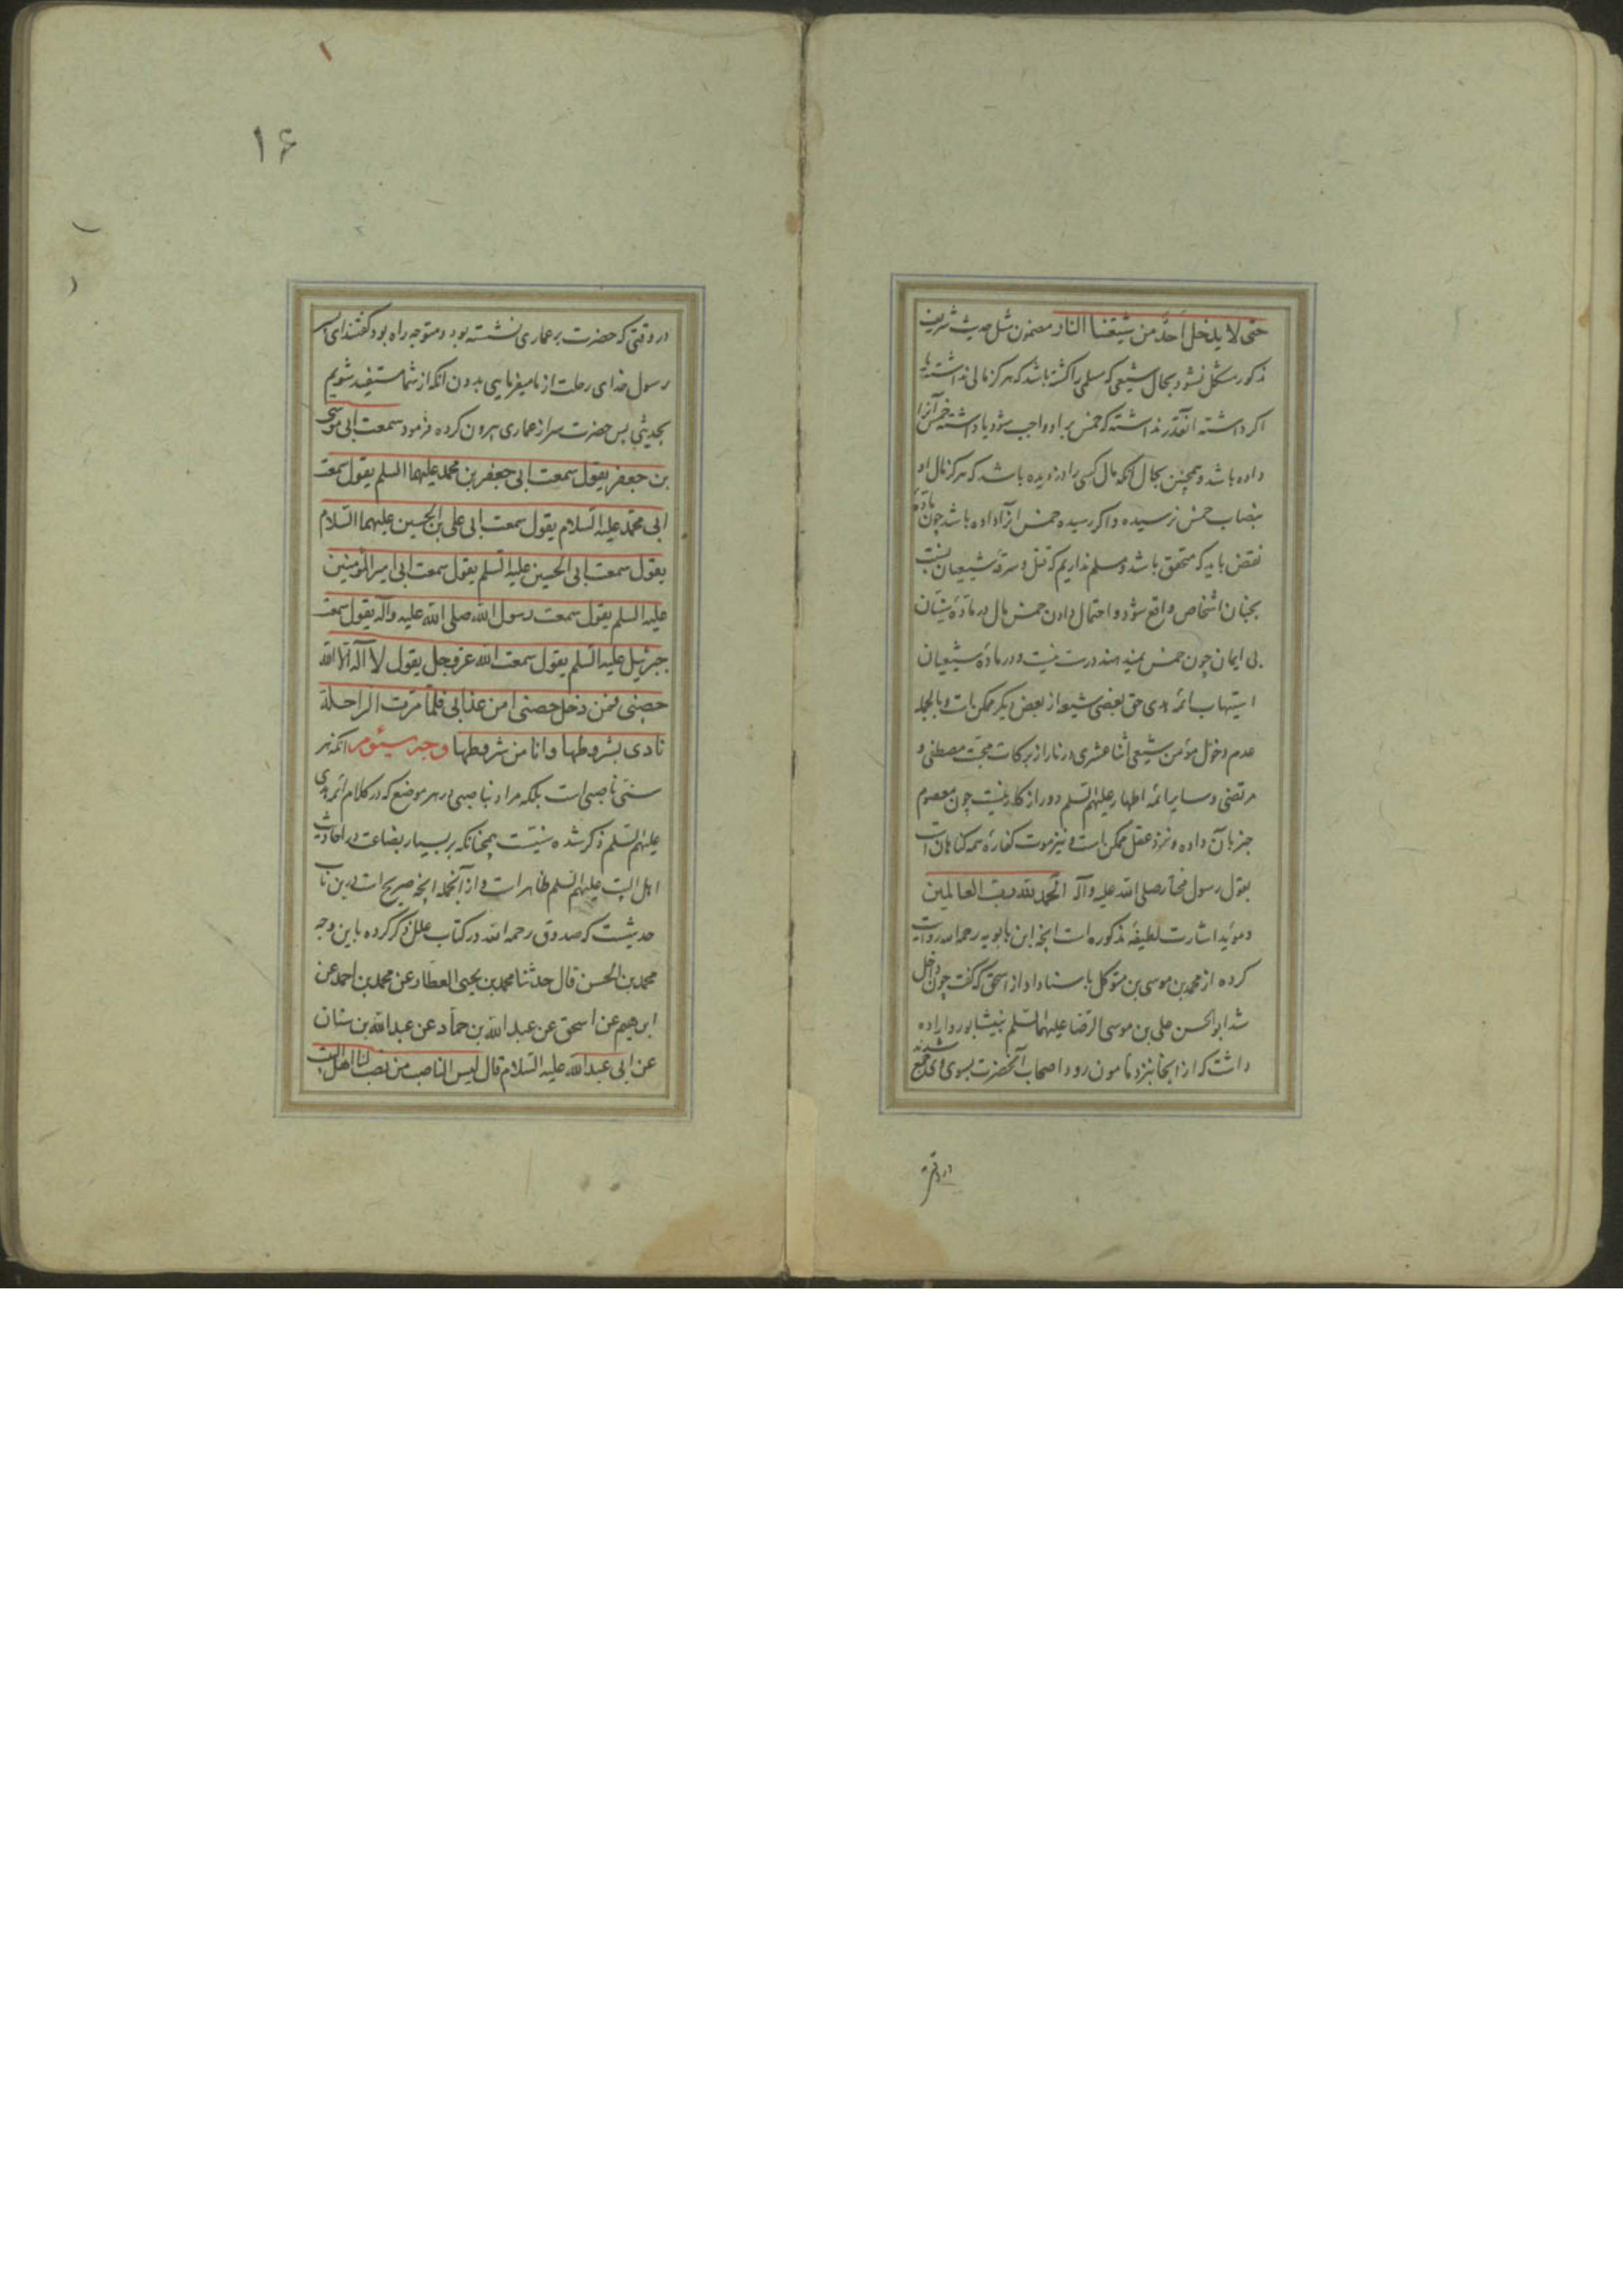 حتی لا یدخل احد من شیعتنا النار مضمون مثل حدیث شریف
مذکور مشکل نشود بحال شیعی که مسلمی را کشته باشد که هرکز مالی نداشته یا
اکر داشته آنقدر نداشته که خمس بر او واجب شود یا داشته خمس آنرا
داده باشد و همچنین بحال آنکه مال کسی را دزدیده باشد که هرکز مال او
بنصاب خمس نرسیده و اکر رسیده خمس آنرا داده باشد چون ماده
نقض باید که متحقق باشد و مسلم نداریم که قتل و سرقه شیعیان نسبت
بچنان اشخاص واقع شود و احتمال دادن خمس مال در ماده سنیان
بی ایمان چون خمس نمیدهند درست نیست و در ماده شیعیان
استیهاب ائمه هدی حق بعضی شیعه از بعض دیکر ممکن است و بالجمله
عدم دخول مؤمن شیعی اثنا عشری در نار از برکات محبت مصطفی و
مرتضی و سایر ائمه اطهار علیهم السلم دور از کار نیست چون معصوم
خبر بآن داده و نزد عقل ممکن است و نیز موت کفاره همه کناهان است
بقول رسول مختار صلی الله علیه و آله الحمد لله رب العالمین
و مؤید اشارت لطیفه مذکوره است آنچه ابن بابویه رحمه الله روایت
کرده از محمد بن موسی بن متوکل باسناد او از اسحق که کفت چون داخل
شد ابو الحسن علی بن موسی الرضا علیهما السلم بنیشابور و اراده
داشت که از آنجا بنزد مامون رود اصحاب آنحضرت بسوی وی جمع شدند
در وقتی
۱۶
در وقتی که حضرت بر عماری نشسته بود و متوجه راه بود کفتند ای ابن
رسول خدای رحلت از ما میفرمایی بدون آنکه از شما مستفید شویم
بحدیثی پس حضرت سر از عماری بیرون کرده فرمود سمعت ابی موسی
بن جعفر یقول سمعت ابی جعفر بن محمد علیهما السلم یقول سمعت
ابی محمد علیه السلام یقول سمعت ابی علی بن الحسین علیهما السلام
یقول سمعت ابی الحسین علیه السلم یقول سمعت ابی امیر المؤمنین
علیه السلم یقول سمعت رسول الله صلی الله علیه و آله یقول سمعت
جبرئیل علیه السلم یقول سمعت الله عز و جل یقول لا اله الا الله
حصنی فمن دخل حصنی امن عذابی فلما مرت الراحلة
نادی بشروطها و انا من شروطها وجه سیئوم آنکه نه هر
سنی ناصبی است بلکه مراد بناصبی در هر موضع که در کلام ائمه هدی
علیهم السلم ذکر شده سنیست همچنانکه بر بسیار بضاعت در احادیث
اهل البیت علیهم السلم ظاهر است و از آنجمله آنچه صریح است درین باب
حدیثیست که صدوق رحمه الله در کتاب علل ذکر کرده باین وجه
محمد بن الحسن قال حدثنا محمد بن یحیی العطار عن محمد بن احمد عن
ابرهیم عن اسحق عن عبد الله بن حماد عن عبد الله بن سنان
عن ابی عبد الله علیه السلام قال لیس الناصب من نصب لنا اهل البیت